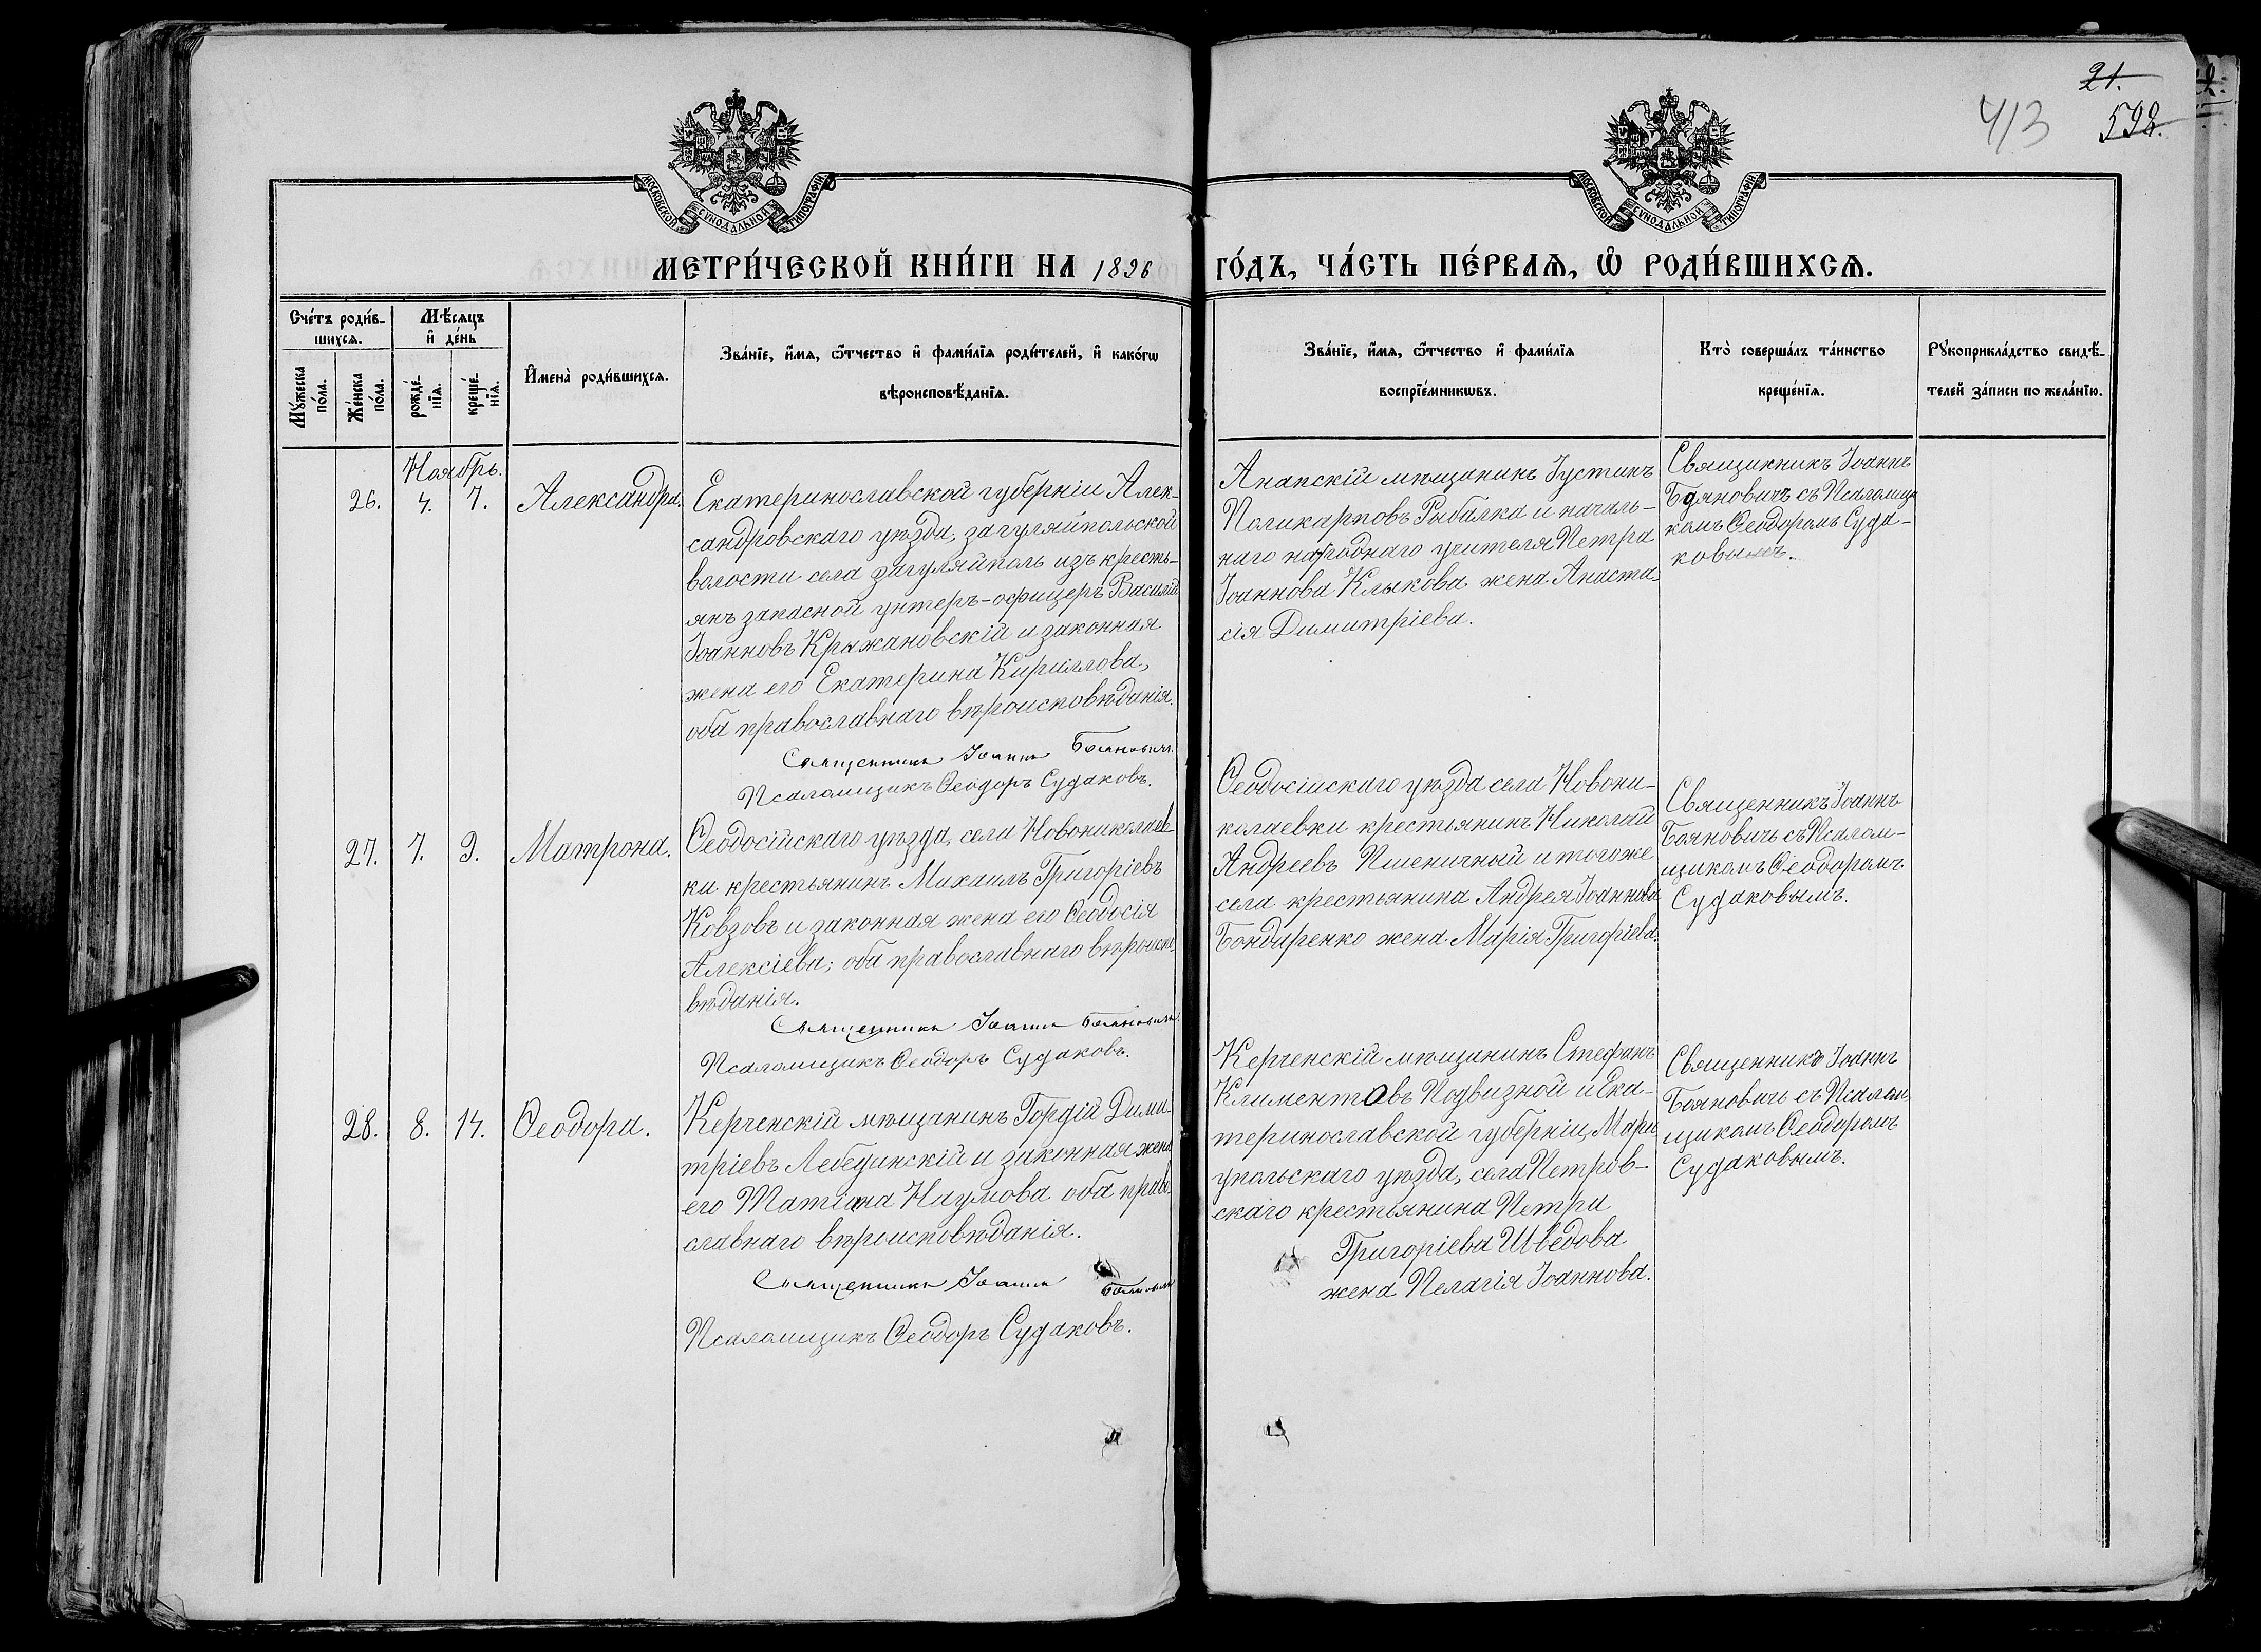 21.
413 598.
МОСКОВСКОЙ СѴНОДАЛЬНОЙ ТИПОГРАФІИ
МОСКОВСКОЙ СѴНОДАЛЬНОЙ ТИПОГРАФІИ
МЕТРИ́ЧЕСКОЙ КНИ́ГИ НА 1896 ГО́ДЪ, ЧА́СТЬ ПЕ́РВАѦ, Ѽ РОДИ́ВШИХСѦ.
Сче́тъ роди́в-
шихсѧ.
Мꙋ́жеска по́ла.
Же́нска по́ла.
Мѣ́сѧцъ
и҆ де́нь
рожде́-
нїѧ.
креще́-
нїѧ.
И҆мена̀ роди́вшихсѧ.
Зва́нїе, и҆́мѧ, ѻ҆́тчество и҆ фами́лїѧ роди́телей, и҆ како́гѡ
вѣроисповѣ́данїѧ.
Зва́нїе, и҆́мѧ, ѻ҆́тчество и҆ фами́лїѧ
воспрїе́мникѡвъ.
Кто̀ соверша́лъ та́инство
креще́нїѧ.
Рꙋкоприкла́дство свидѣ́-
телей за́писи по жела́нїю.
Ноябрь.
26. 4. 7. Александра.
Екатеринославской губерніи Алек-
сандровскаго уѣзда, загуляйпольской
волости села Загуляйполь изъ кресть-
янъ запасной унтеръ-офицеръ Василій
Іоанновъ Крыжановскій и законная
жена его Екатерина Кириллова,
оба православнаго вѣроисповѣданія.
Священникъ Іоаннъ Бояновичъ.
Псаломщикъ Ѳеодоръ Судаковъ.
Анапскій мѣщанинъ Іустинъ
Поликарповъ Рыбалка и началь-
наго народнаго учителя Петра
Іоаннова Клыкова жена Анаста-
сія Димитріева.
Священникъ Іоаннъ
Бояновичъ съ Псаломщи
комъ Ѳеодоромъ Суда-
ковымъ.
27. 7. 9. Матрона.
Ѳеодосійскаго уѣзда, села Новониколаев-
ки крестьянинъ Михаилъ Григоріевъ
Ковзовъ и законная жена его Ѳеодосія
Алексіева; оба православнаго вѣроиспо-
вѣданія.
Священникъ Іоаннъ Бояновичъ.
Псаломщикъ Ѳеодоръ Судаковъ.
Ѳеодосійскаго уѣзда села Новони-
колаевки крестьянинъ Николай
Андреевъ Пшеничный и тогоже
села крестьянина Андрея Іоаннова
Бондаренко жена Марія Григоріева.
Священникъ Іоаннъ
Бояновичъ съ Псалом-
щикомъ Ѳеодоромъ
Судаковымъ.
28. 8. 14. Ѳеодора.
Керченскій мѣщанинъ Гордій Дими-
тріевъ Лебединскій и законная жена
его Татіана Наумова оба право-
славнаго вѣроисповѣданія.
Священникъ Іоаннъ Бояновичъ
Псаломщикъ Ѳеодоръ Судаковъ.
Керченскій мѣщанинъ Стефанъ
Климентовъ Подвизной и Ека-
теринославской губерніи, Мари-
упольскаго уѣзда, села Петров-
скаго крестьянина Петра
Григоріева Шведова
жена Пелагія Іоаннова.
Священникъ Іоаннъ
Бояновичъ съ Псалом
щикомъ Ѳеодоромъ
Судаковымъ.